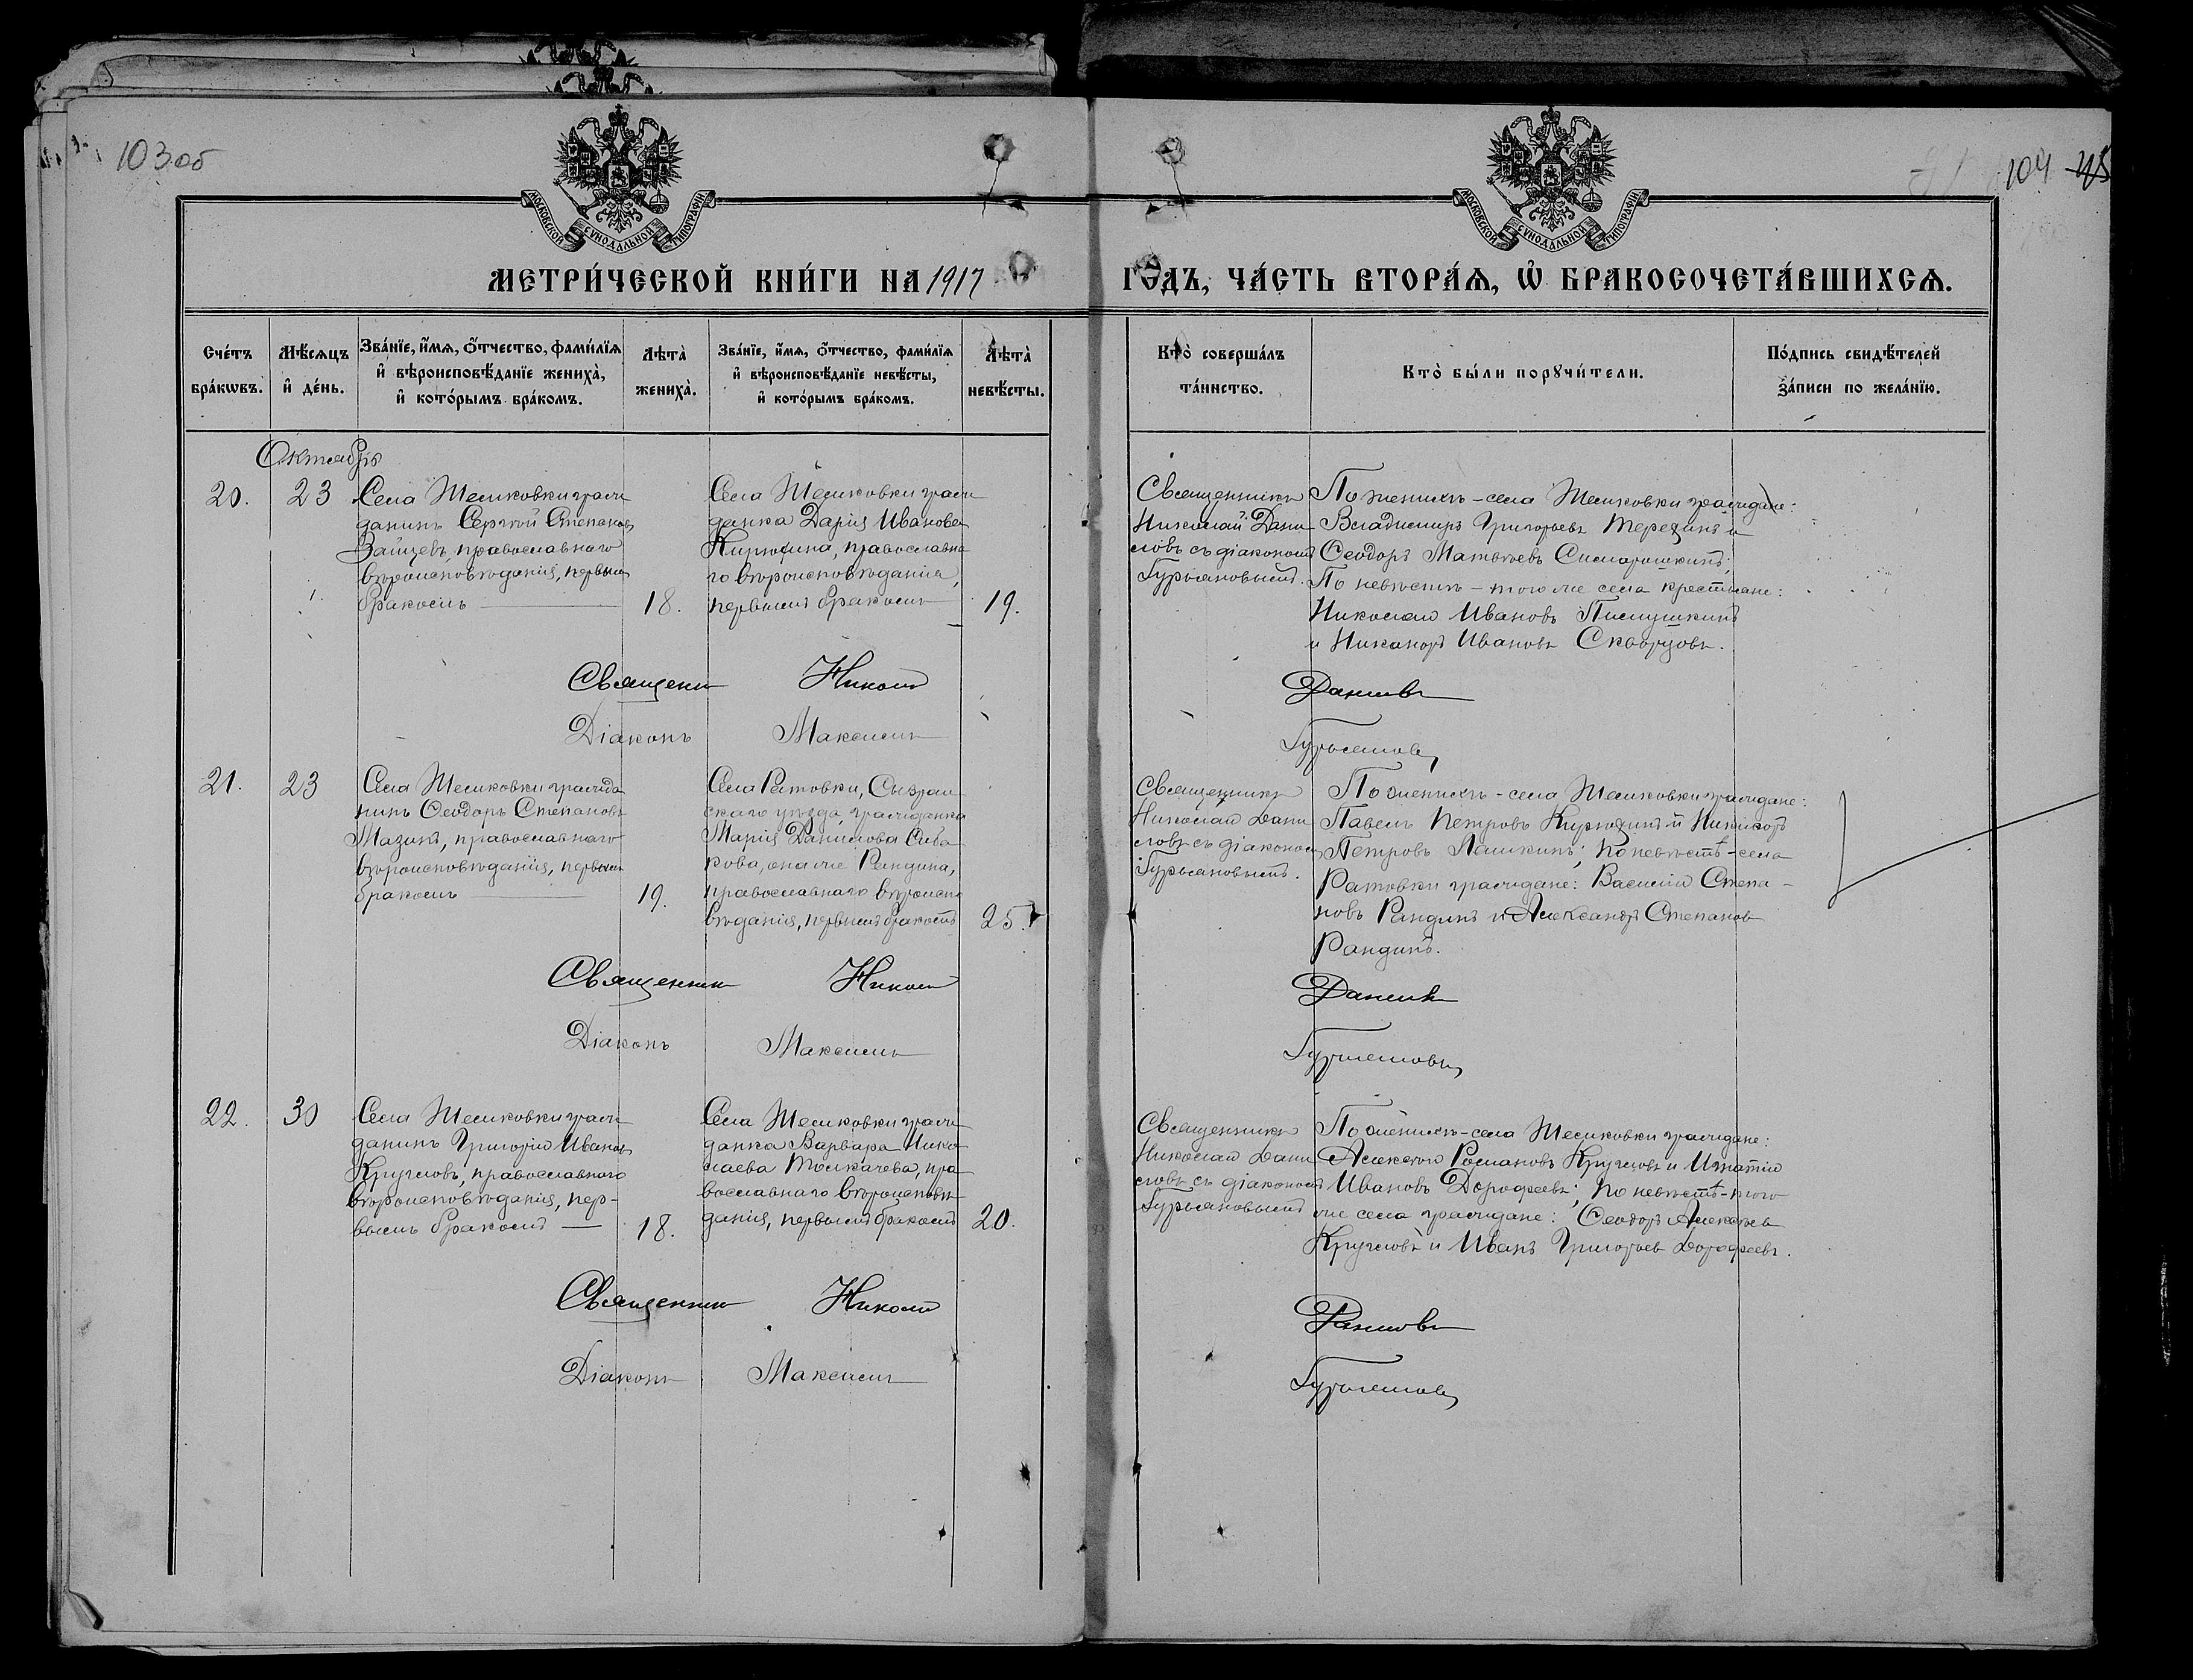 103 об
104
МОСКОВСКОЙ СУНОДАЛЬНОЙ ТИПОГРАФІИ
МОСКОВСКОЙ СУНОДАЛЬНОЙ ТИПОГРАФІИ
МЕТРИ́ЧЕСКОЙ КНИ́ГИ НА 1917 ГО́ДЪ, ЧА́СТЬ ВТОРА́Я, Ѽ БРАКОСОЧЕТА́ВШИХСЯ.
Сче́тъ
бра́кѡвъ.
Мѣ́сяцъ
и҆ де́нь.
Зва́нїе, и҆́мя, ѻ҆́тчество, фами́лїя
и҆ вѣроисповѣ́данїе жениха̀,
и҆ кото́рымъ бра́комъ.
Лѣта̀
жениха̀.
Зва́нїе, и҆́мя, ѻ҆́тчество, фами́лїя
и҆ вѣроисповѣ́данїе невѣ́сты,
и҆ кото́рымъ бра́комъ.
Лѣта̀
невѣ́сты.
Кто̀ соверша́лъ
та́инство.
Кто̀ бы́ли порꙋчи́тели.
По́дпись свидѣ́телей
за́писи по жела́нїю.
Октябрь
20.
23
Села Шемиковки граж-
данинъ Сергѣй Степановъ
Зайцевъ, православнаго
вѣроисповѣданія, первымъ
бракомъ
18.
Села Шемиковки граж-
данка Дарія Иванова
Кирюхина, православна-
го вѣроисповѣданія,
первымъ бракомъ
19.
Священникъ
Николай Дани-
ловъ съ діакономъ
Гурьяновымъ.
По женихѣ - села Шемиковки граждане:
Владимиръ Григорьевъ и
Ѳеодоръ Матвѣевъ
По невѣстѣ - того же села крестьяне:
Николай Ивановъ
и Никаноръ Ивановъ Скворцовъ.
Священник Николай Данилов
Діаконъ Максимъ Гурьянов
21.
23
Села Шемиковки гражда-
нинъ Ѳеодоръ Степановъ
Мазинъ, православнаго
вѣроисповѣданія, первымъ
бракомъ
19.
Села Ратовки, Сызран-
скаго уѣзда, гражданка
Марія Данилова Сиба-
кова, она же Рандина,
православнаго вѣроиспо-
вѣданія, первымъ бракомъ
25.
Священникъ
Николай Дани-
ловъ съ діакономъ
Гурьяновымъ.
По женихѣ - села Шемиковки граждане:
Павелъ Петровъ Кирюхинъ и Никифоръ
Петровъ Лашкинъ; по невѣстѣ - села
Ратовки граждане: Василій Степа-
новъ Рандинъ и Александръ Степановъ
Рандинъ.
Священник Николай Данилов
Діаконъ Максимъ Гурьяновъ
22.
30
Села Шемиковки граж-
данинъ Григорій Ивановъ
Кругловъ, православнаго
вѣроисповѣданія, пер-
вымъ бракомъ
18.
Села Шемиковки граж-
данка Варвара Нико-
лаева Толкачева, пра-
вославнаго вѣроисповѣ-
данія, первымъ бракомъ
20.
Священникъ
Николай Дани-
ловъ съ діакономъ
Гурьяновымъ
По женихѣ - села Шемиковки граждане:
Алексѣй Романовъ Кругловъ и Игнатій
Ивановъ Дорофеевъ; по невѣстѣ - того
же села граждане: Ѳеодоръ Алексѣевъ
Кругловъ и Иванъ Григорьев Дорофеевъ.
Священник Николай Данилов
Діаконъ Максимъ Гурьянов